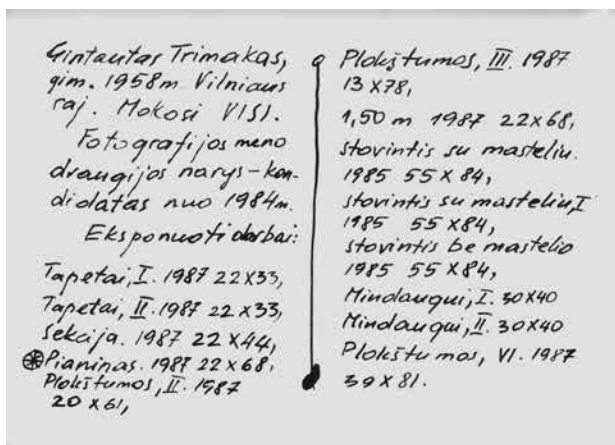 Gintautas Trimakas,
gim. 1958m. Vilniaus
raj. Mokosi VISI.
Fotografijos meno
draugijos narys-kan-
didatas nuo 1984m.
Eksponuoti darbai:
Tapetai, I. 1987 22x33,
Tapetai, II. 1987 22x33,
Sekcija. 1987 22x44,
Pianinas. 1987 22x68,
Plokštumos, II. 1987
20 x 61,
Plokštumos, III. 1987
13 x78,
1,50 m 1987 22x68,
stovintis su masteliu.
1985 55 x 84,
stovintis su masteliu, I
1985 55 x 84,
stovintis be mastelio
1985 55 x 84,
Mindaugui, I. 30x40
Mindaugui, II. 30x40
Plokštumos, VI. 1987
39 x 81.